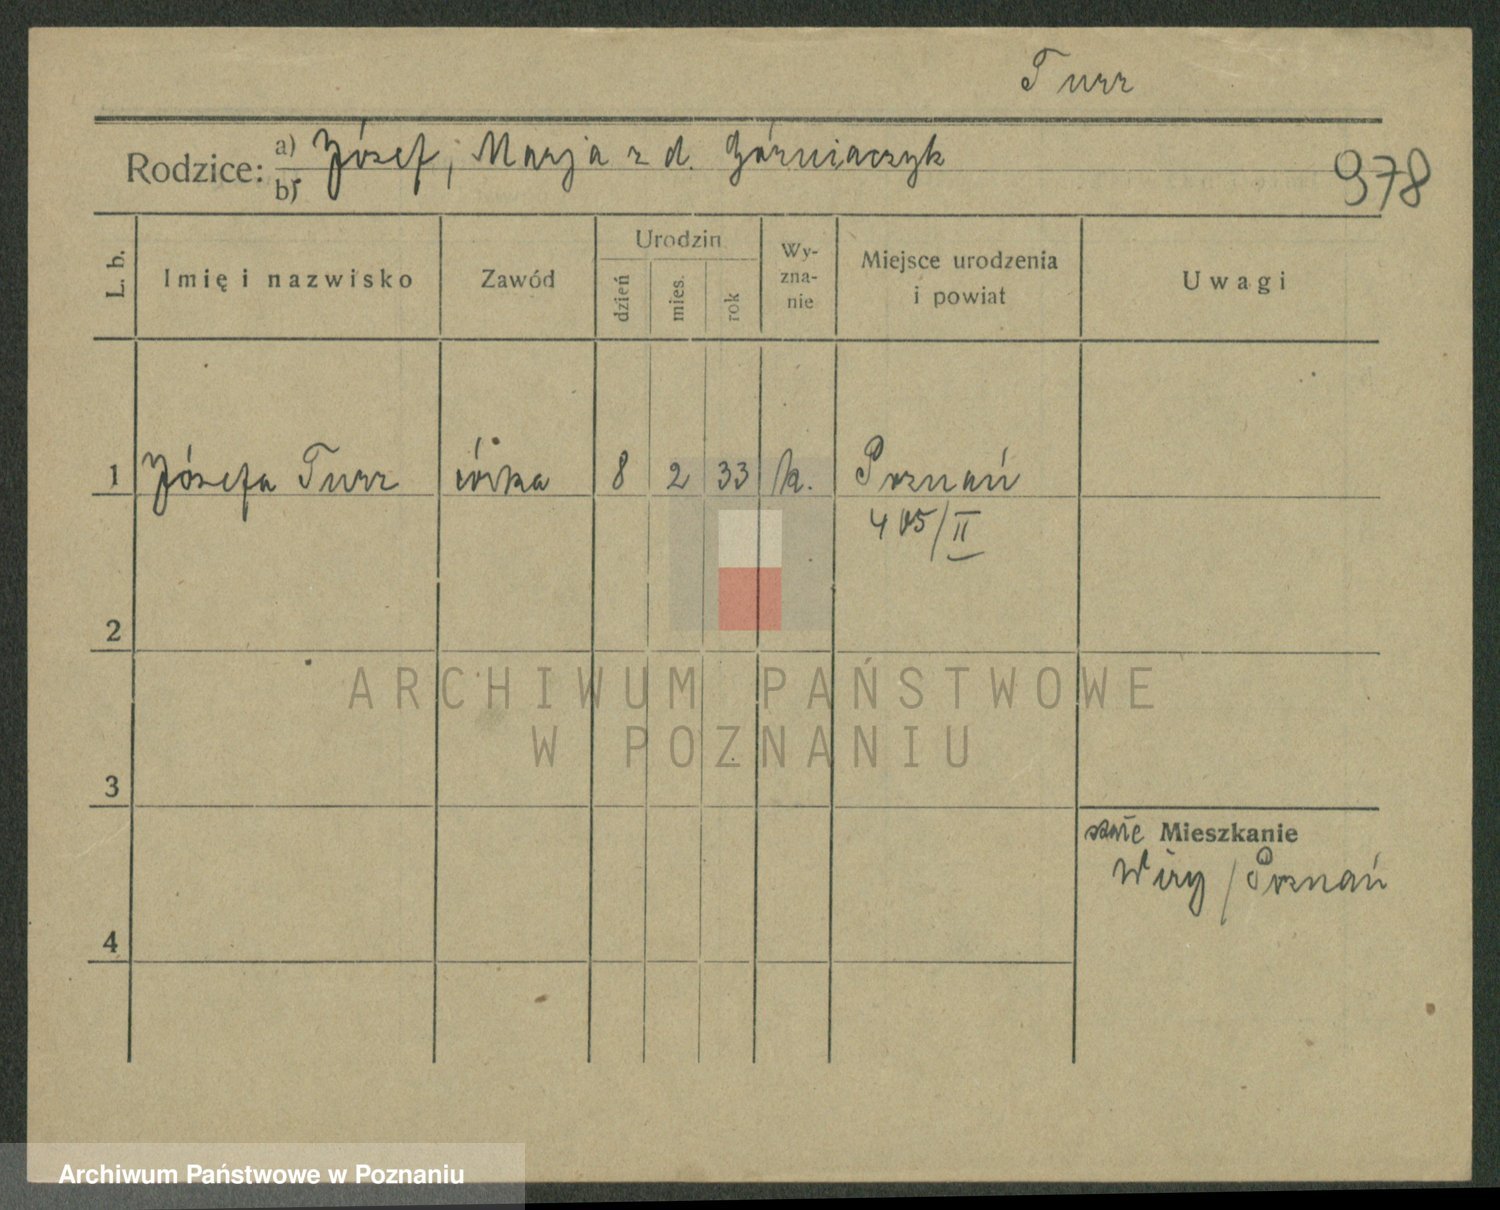 Turr
Rodzice: a) Józef, Marja z d. Górniaczyk
b)
978
L. b.
Imię i nazwisko
Zawód
Urodzin
dzień
mies.
rok
Wy-
zna-
nie
Miejsce urodzenia
i powiat
Uwagi
1 Józefa Turr córka 8 2 33 k. Poznań
405/II
2
ARCHIWUM PAŃSTWOWE
W POZNANIU
3
stałe Mieszkanie
Wiry / Poznań
4
Archiwum Państwowe w Poznaniu